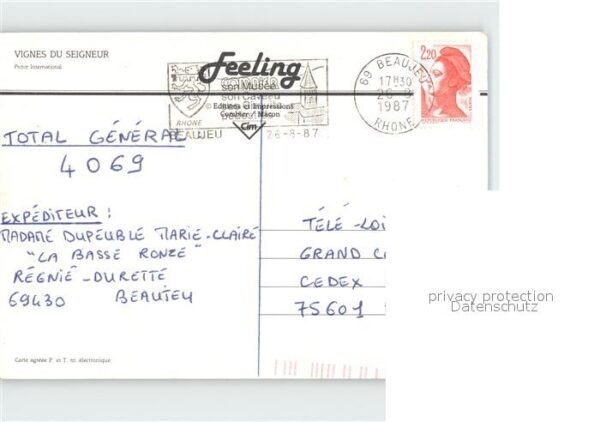 VIGNES DU SEIGNEUR
Feeling
son Musée
© Editions et Impressions
Combier / Mâcon
Cim
RHONE
BEAUJEU
26-8-87
69 BEAUJEU
17H30
1987
RHONE
2,20
REPUBLIQUE FRANCAISE
TOTAL GÉNÉRAL
4069
EXPÉDITEUR :
MADAME DUPEUBLE MARIE-CLAIRE
"LA BASSE RONZE"
RÉGNIÉ-DURETTE
69430 BEAUJEU
TÉLÉ-LOI
GRAND C
CEDEX
75601
privacy protection
Datenschutz
Carte agréée P. et T. tri électronique